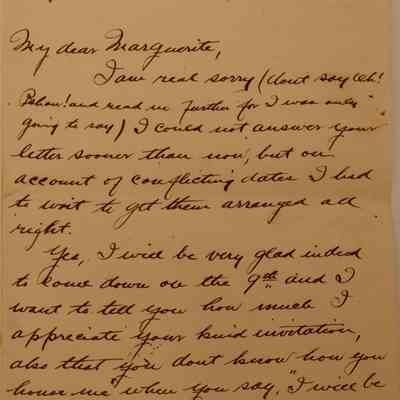 My dear Marguerite,
I am real sorry (dont say Oh!
Pshaw! and read no further for I was only
going to say) I could not answer your
letter sooner than now, but on
account of conflicting dates I had
to wait to get them arranged all
right.
Yes, I will be very glad indeed
to come down on the 9th and I
want to tell you how much I
appreciate your kind invitation,
also that you dont know how you
honor me" when you say, "I will be